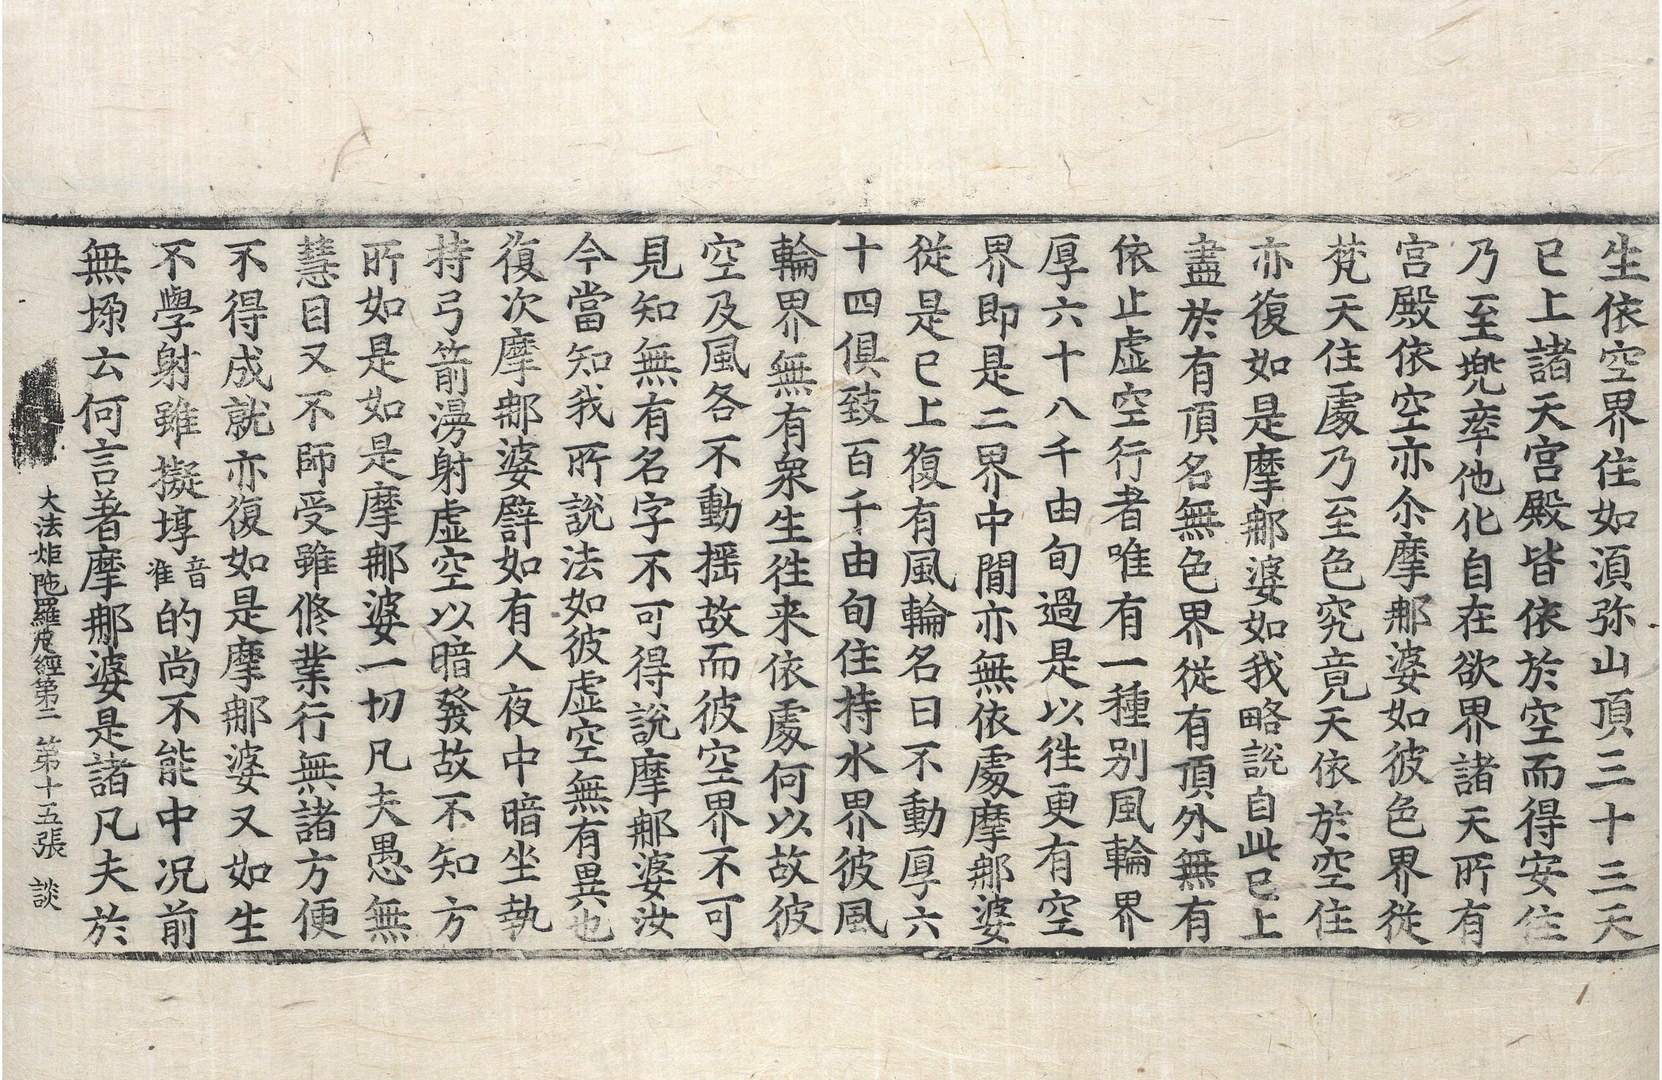 生依空界住如湏弥山頂三十三天
已上諸天宫殿皆依於空而得安住
乃至兠率他化自在欲界諸天所有
宫殿依空亦尒摩那婆如彼色界從
梵天住處乃至色究竟天依於空住
亦復如是摩那婆如我略說自此已上
盡於有頂名無色界從有頂外無有
依止虚空行者唯有一種别風輪界
厚六十八千由旬過是以往更有空
界即是二界中間亦無依處摩那婆
從是已上復有風輪名曰不動厚六
十四俱致百千由旬住持水界彼風
輪界無有衆生往来依處何以故彼
空及風各不動揺故而彼空界不可
見知無有名字不可得說摩那婆汝
今當知我所說法如彼虚空無有異也
復次摩那婆譬如有人夜中暗坐執
持弓箭漫射虚空以暗發故不知方
所如是如是摩那婆一切凡夫愚無
慧目又不師受雖修業行無諸方便
不得成就亦復如是摩那婆又如生
不學射雖擬埻音准的尚不能中况前
無堢云何言著摩那婆是諸凡夫於
大法炬陁羅尼經第二 第十五張 談